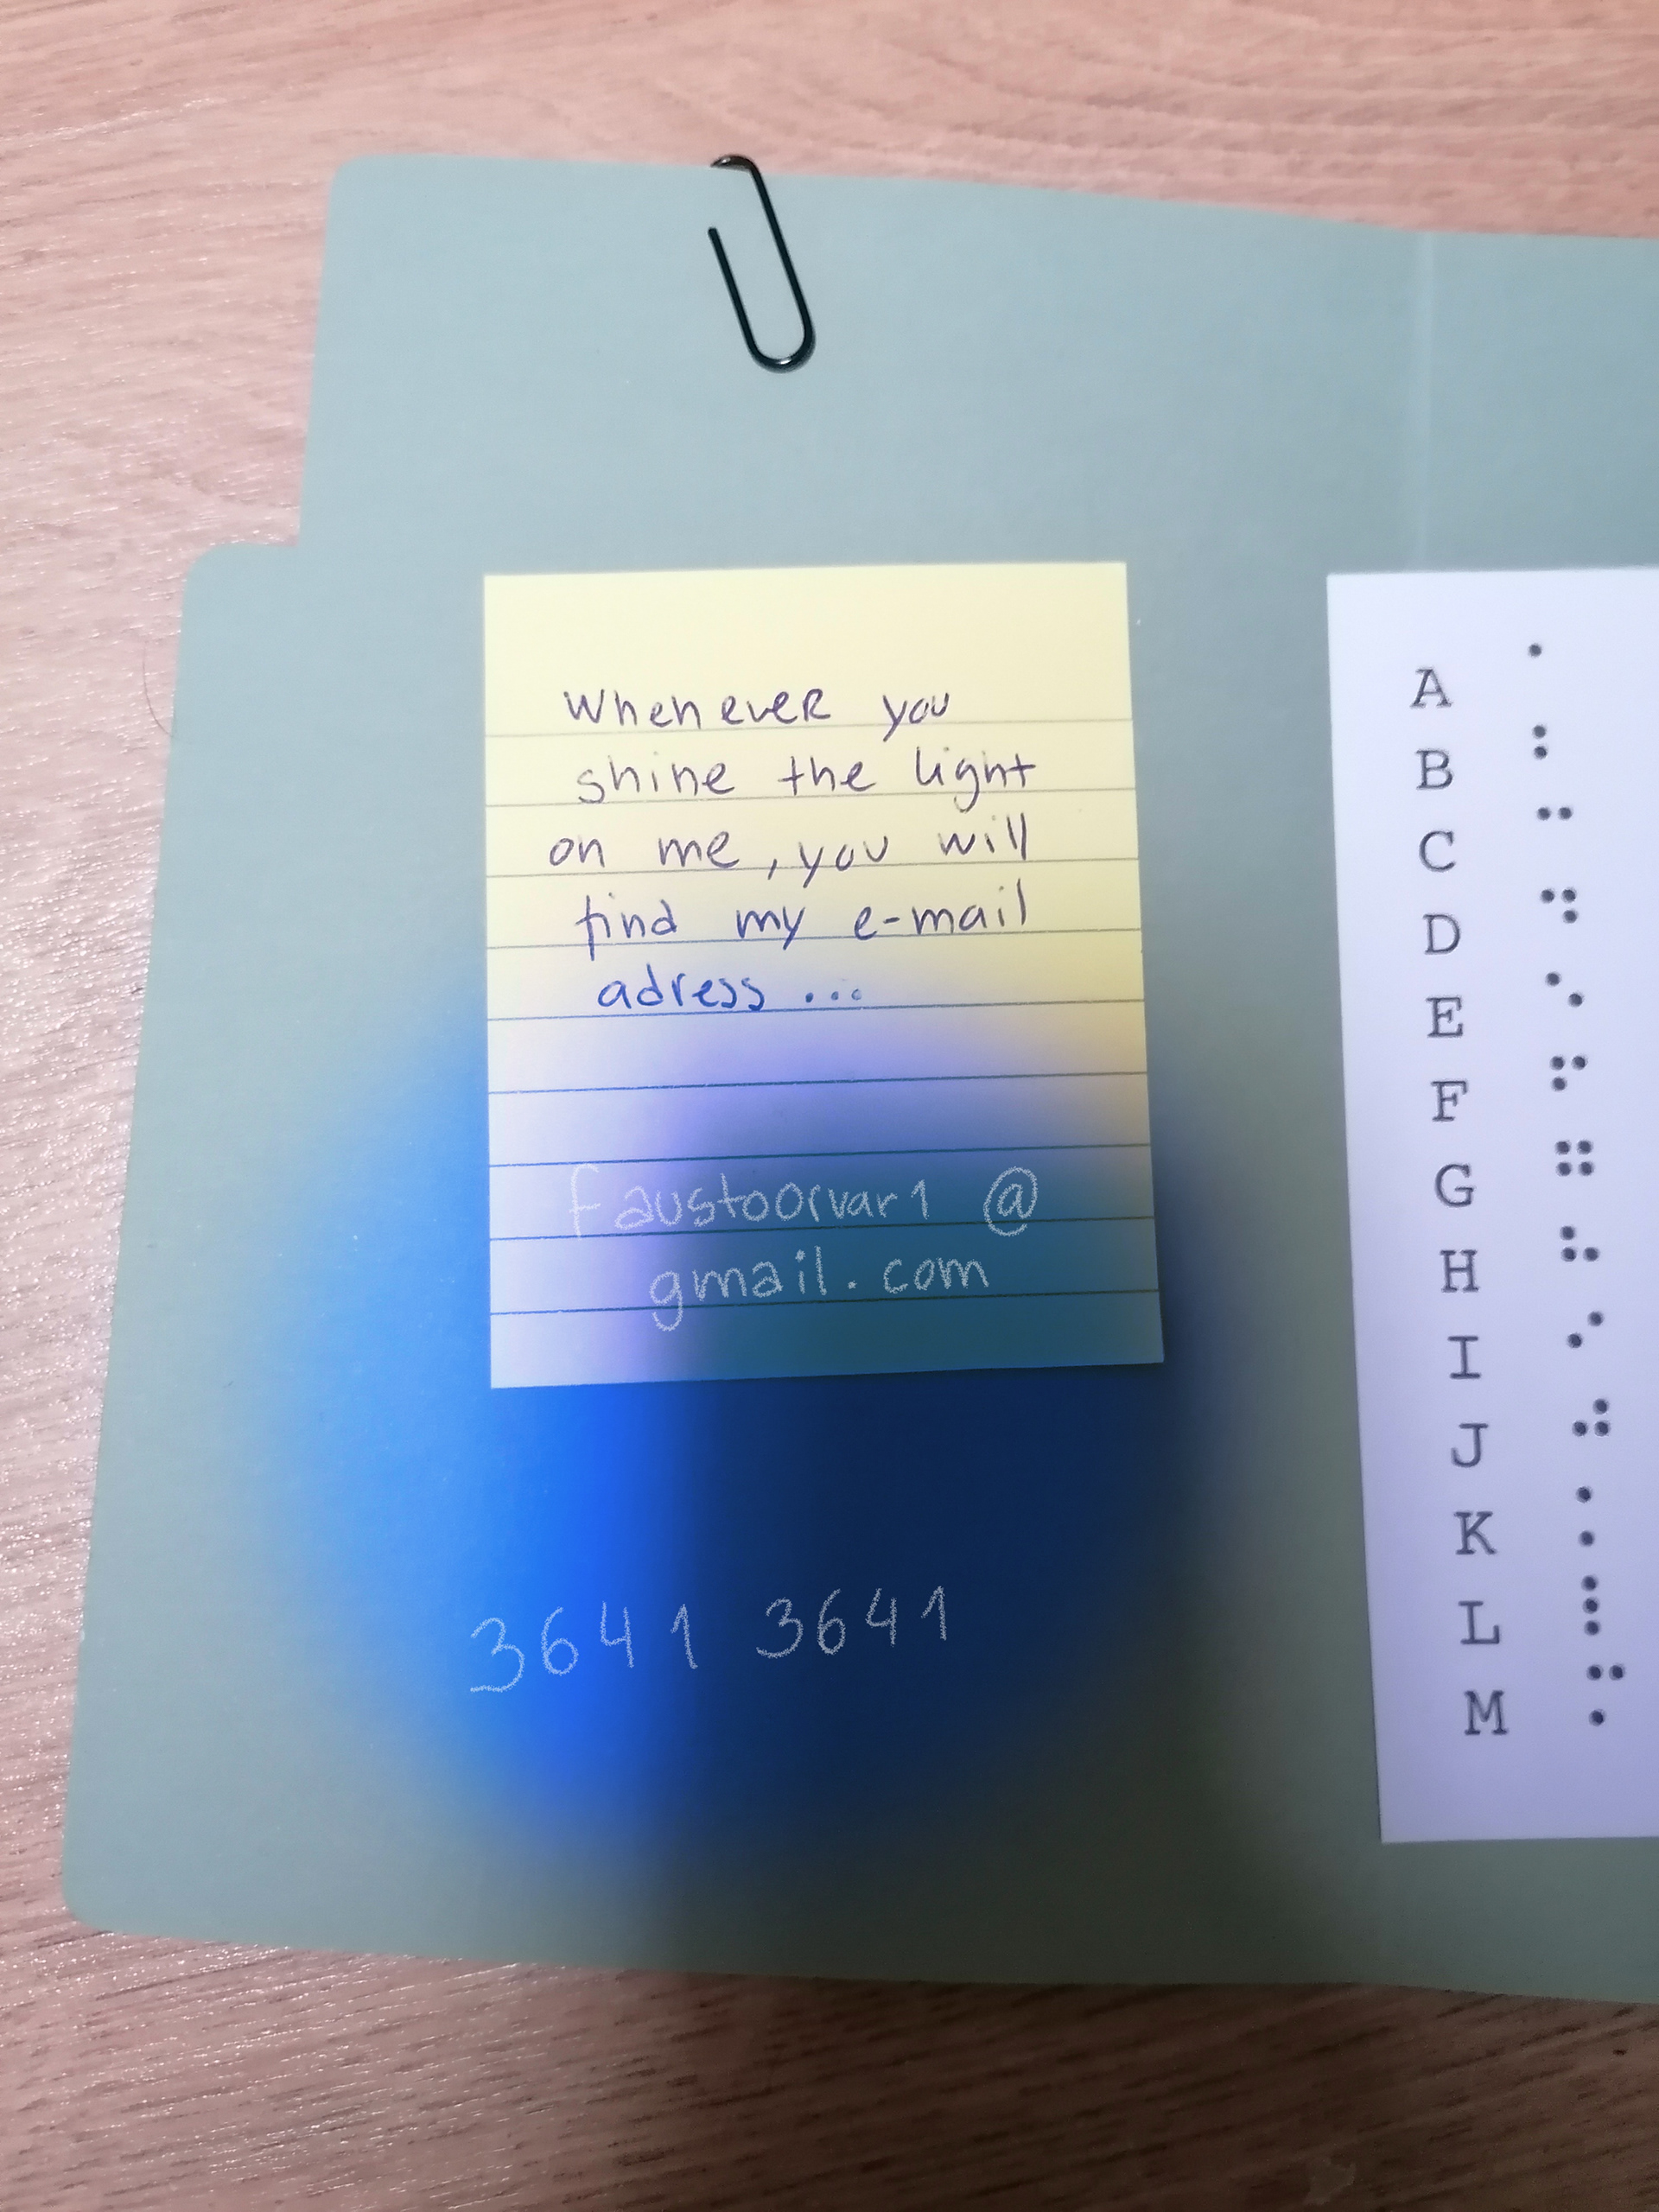 Whenever you
shine the light
on me, you will
find my e-mail
adress ...
faustoorvar1 @
gmail.com
3641 3641
A ⠁
B ⠃
C ⠉
D ⠙
E ⠑
F ⠋
G ⠛
H ⠓
I ⠊
J ⠚
K ⠅
L ⠇
M ⠍